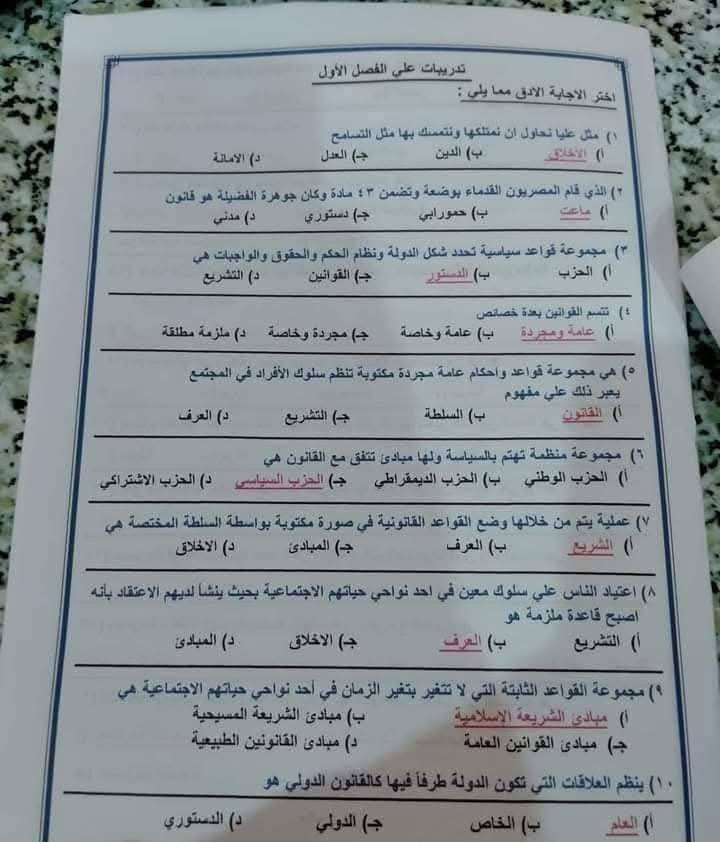 تدريبات علي الفصل الأول
اختر الاجابة الادق مما يلي :
١) مثل عليا نحاول ان نمتلكها ونتمسك بها مثل التسامح
أ) الأخلاق ب) الدين جـ) العدل د) الامانة
٢) الذي قام المصريون القدماء بوضعة وتضمن ٤٣ مادة وكان جوهرة الفضيلة هو قانون
أ) ماعت ب) حمورابي جـ) دستوري د) مدني
٣) مجموعة قواعد سياسية تحدد شكل الدولة ونظام الحكم والحقوق والواجبات هي
أ) الحزب ب) الدستور جـ) القوانين د) التشريع
٤) تتسم القوانين بعدة خصائص
أ) عامة ومجردة ب) عامة وخاصة جـ) مجردة وخاصة د) ملزمة مطلقة
٥) هي مجموعة قواعد واحكام عامة مجردة مكتوبة تنظم سلوك الأفراد في المجتمع
يعبر ذلك علي مفهوم
أ) القانون ب) السلطة جـ) التشريع د) العرف
٦) مجموعة منظمة تهتم بالسياسة ولها مبادئ تتفق مع القانون هي
أ) الحزب الوطني ب) الحزب الديمقراطي جـ) الحزب السياسي د) الحزب الاشتراكي
٧) عملية يتم من خلالها وضع القواعد القانونية في صورة مكتوبة بواسطة السلطة المختصة هي
أ) الشريع ب) العرف جـ) المبادئ د) الاخلاق
٨) اعتياد الناس علي سلوك معين في احد نواحي حياتهم الاجتماعية بحيث ينشأ لديهم الاعتقاد بأنه
اصبح قاعدة ملزمة هو
أ) التشريع ب) العرف جـ) الاخلاق د) المبادئ
٩) مجموعة القواعد الثابتة التي لا تتغير بتغير الزمان في أحد نواحي حياتهم الاجتماعية هي
أ) مبادئ الشريعة الإسلامية ب) مبادئ الشريعة المسيحية
جـ) مبادئ القوانين العامة د) مبادئ القانونين الطبيعية
١٠) ينظم العلاقات التي تكون الدولة طرفاً فيها كالقانون الدولي هو
أ) العام ب) الخاص جـ) الدولي د) الدستوري